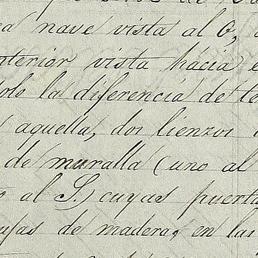 a nave vista al O,
nterior vista hácia e
olo la diferencia de te
s aquella, dos lienzos
de muralla (uno al
o al S.) cuyas puerta
usas de madera, en las